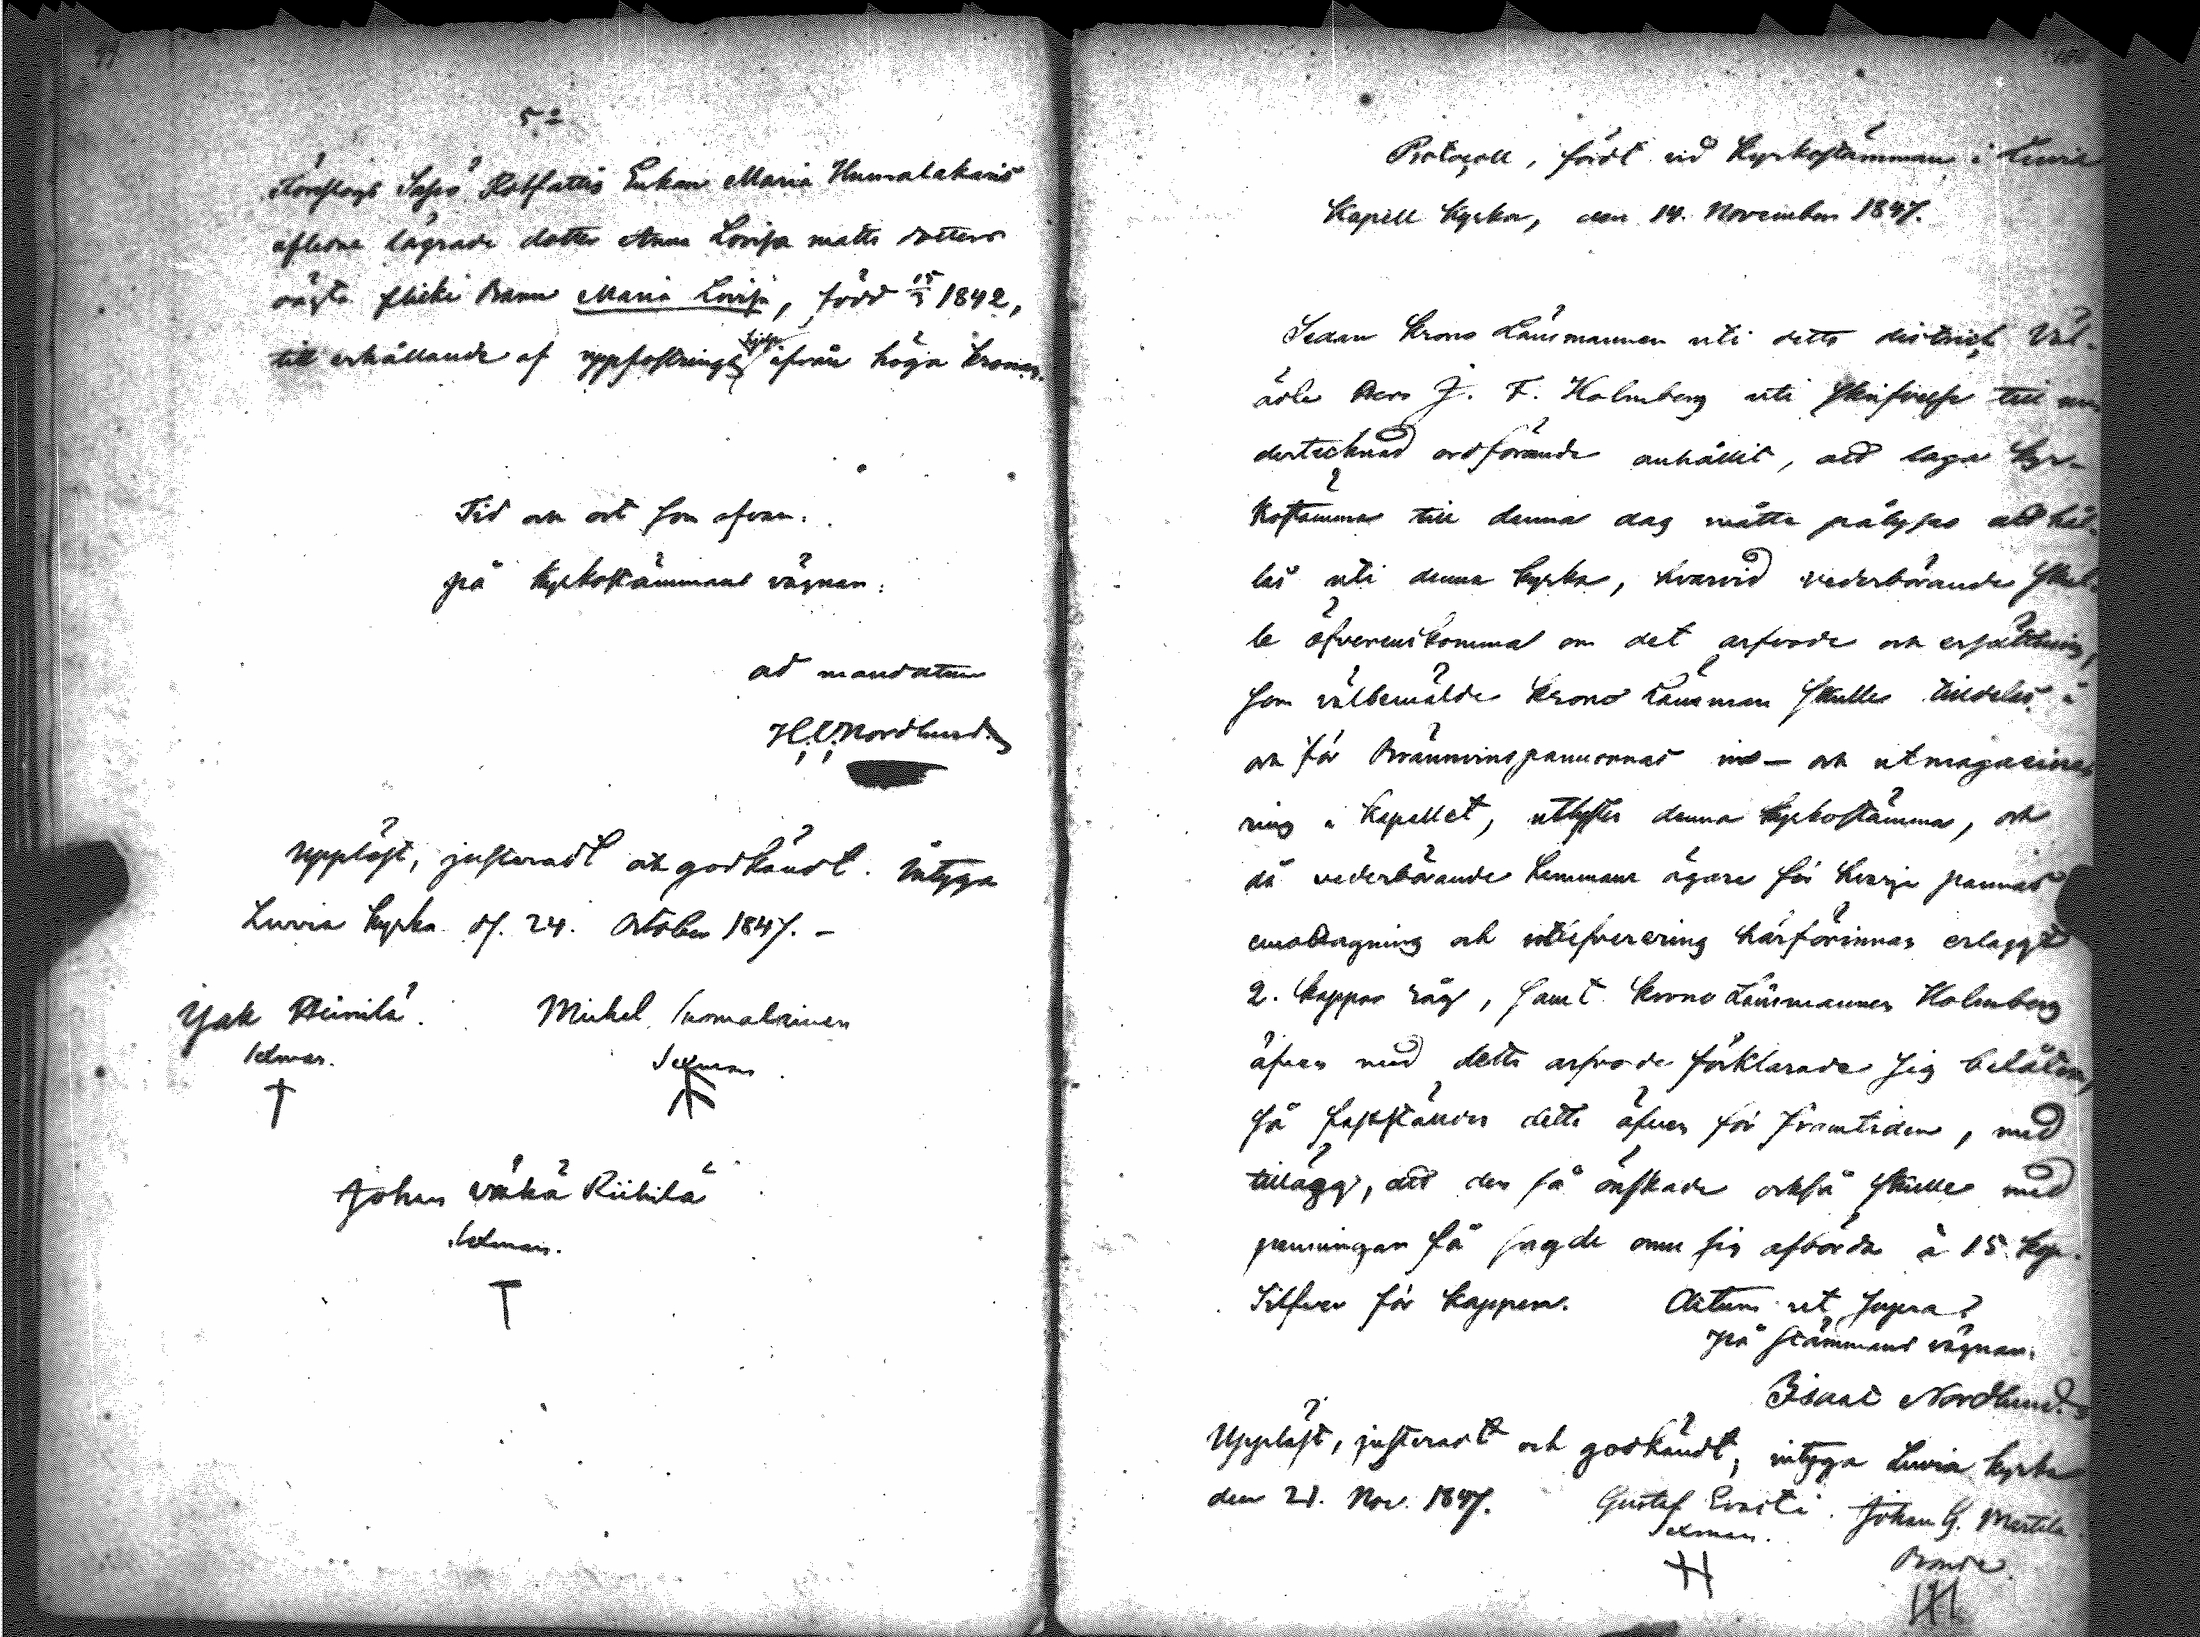 99
5º
Föreslogs Sassi Rotfattig Enkan Maria Humalakaris
aflidne lägrade dotter Anna Lovisa matts dotters
oägta flicke Barn Maria Lovisa, född 15/3 1842,
till erhållande af uppfostrings hjelp ifrån höga Kronan.
Tid och ort som ofvan.
på Kyrkostämmans vägnar:
ad mandatum
H. I. Nordlund.
Uppläst, justeradt och godkändt. intyga
Luvia Kyrka d. 24. October 1847. –
Jak Heinilä.
Sexman.
Michel Suomalainen
Sexman.
Johan wähä Riihilä
Sexman.
Protocoll, fördt vid Kyrkostämman i Luvia
Kapell Kyrka, den 14. November 1847.
Sedan Krono Länsmannen uti detta district Väl-
ädle Herr J. F. Holmberg uti skrifvelse till un
dertecknad ordförande anhållit, att laga Kyr-
kostämma till denna dag måtte pålysas att hål-
las uti denna Kyrka, hvarvid vederbörande skul-
le öfverenskomma om det arfvode och ersättning,
som välbemälde Krono Länsman skulle tilldelas i
och för Brännvinspannornas in – och utmagasine
ring i Kapellet, utlystes denna Kyrkostämma, och
då vederbörande hemmans ägare för hvarje pannas
emottagning och utlefverering härförinnan erlaggt
2. kappar råg, samt Krono Länsmannen Holmberg
äfven med detta arfvode förklarade sig belåten,
så fastställdes detta äfven för framtiden, med
tillägg, att den så önskade också skulle med
penningar få sagde onus sig afbörda à 15 kop.
Silfver för kappen. Actum ut supra
på stämmans vägnar:
Isaac Nordlund.
Uppläst, justeradt och godkändt, intyga Luvia Kyrka
den 21. Nov. 1847. Gustaf Evasti. Johan G. Martila.
Sexman. Bonde.